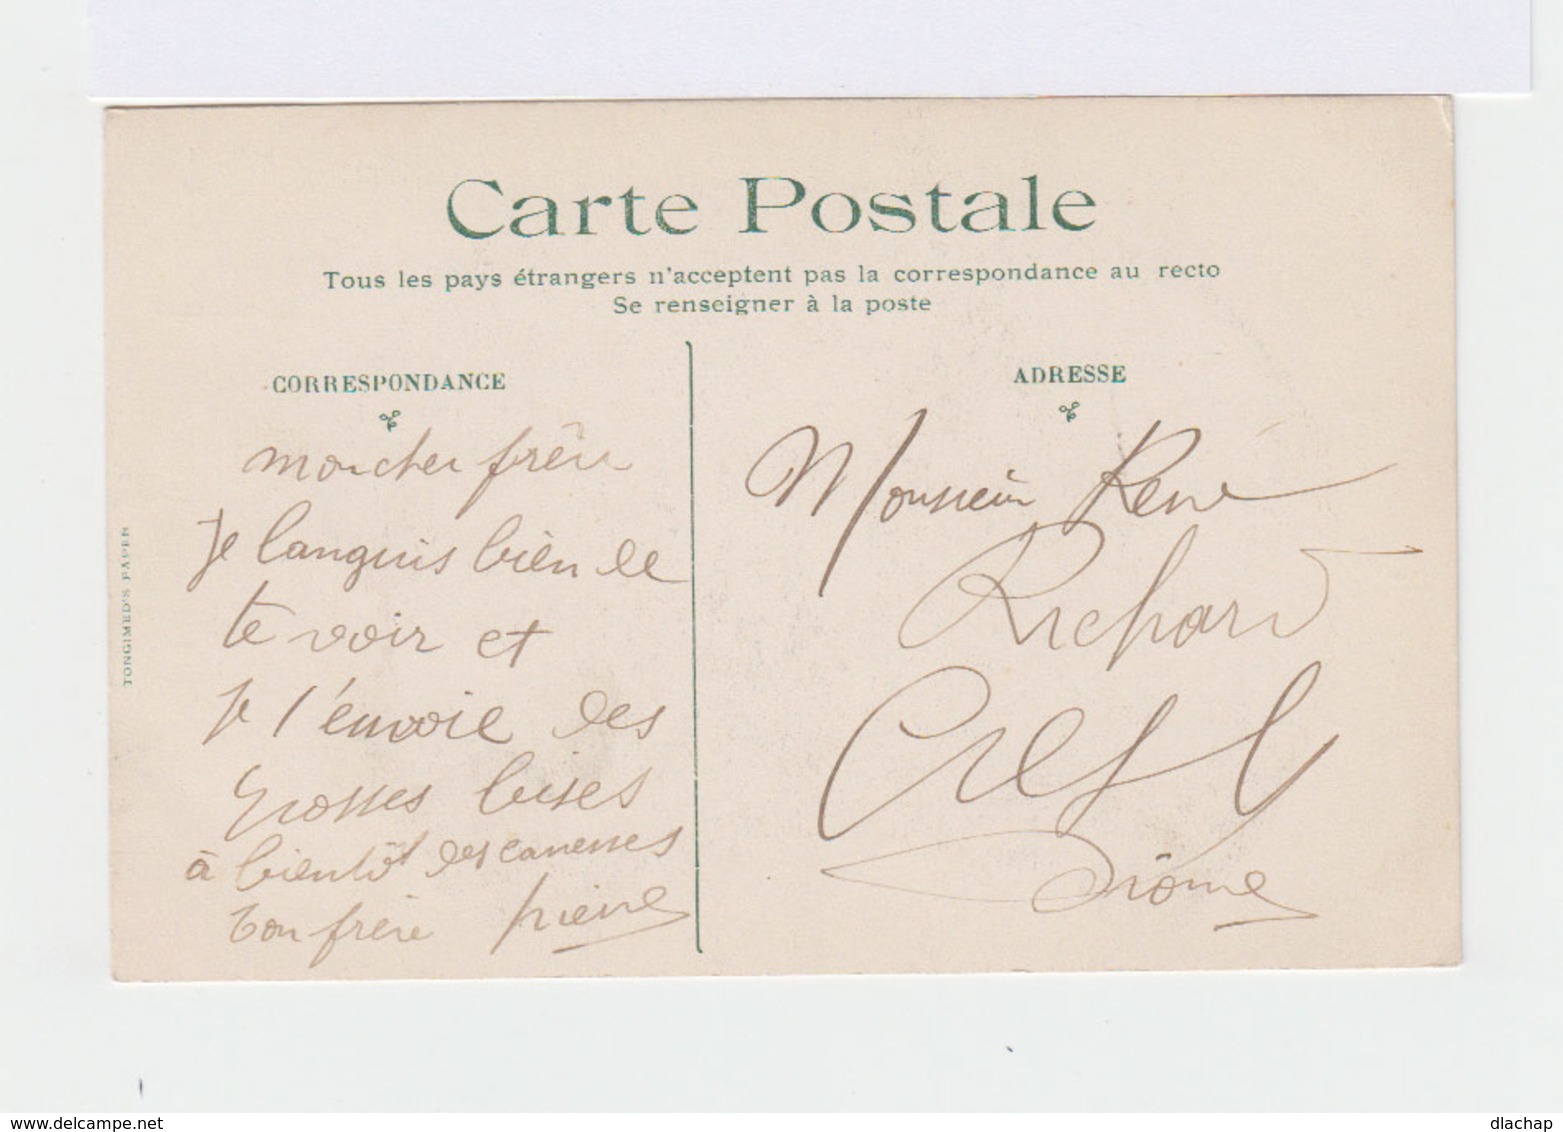 Carte Postale
Tous les pays étrangers n'acceptent pas la correspondance au recto
Se renseigner à la poste
CORRESPONDANCE
mon cher frère
Je languis bien de
te voir et
je t'envoie des
grosses bises
à bientôt des caresses
ton frère Pierre
ADRESSE
Monsieur René
Richard
Crest
Drôme
TONGIMED'S PAPER
www.delcampe.net
dlachap